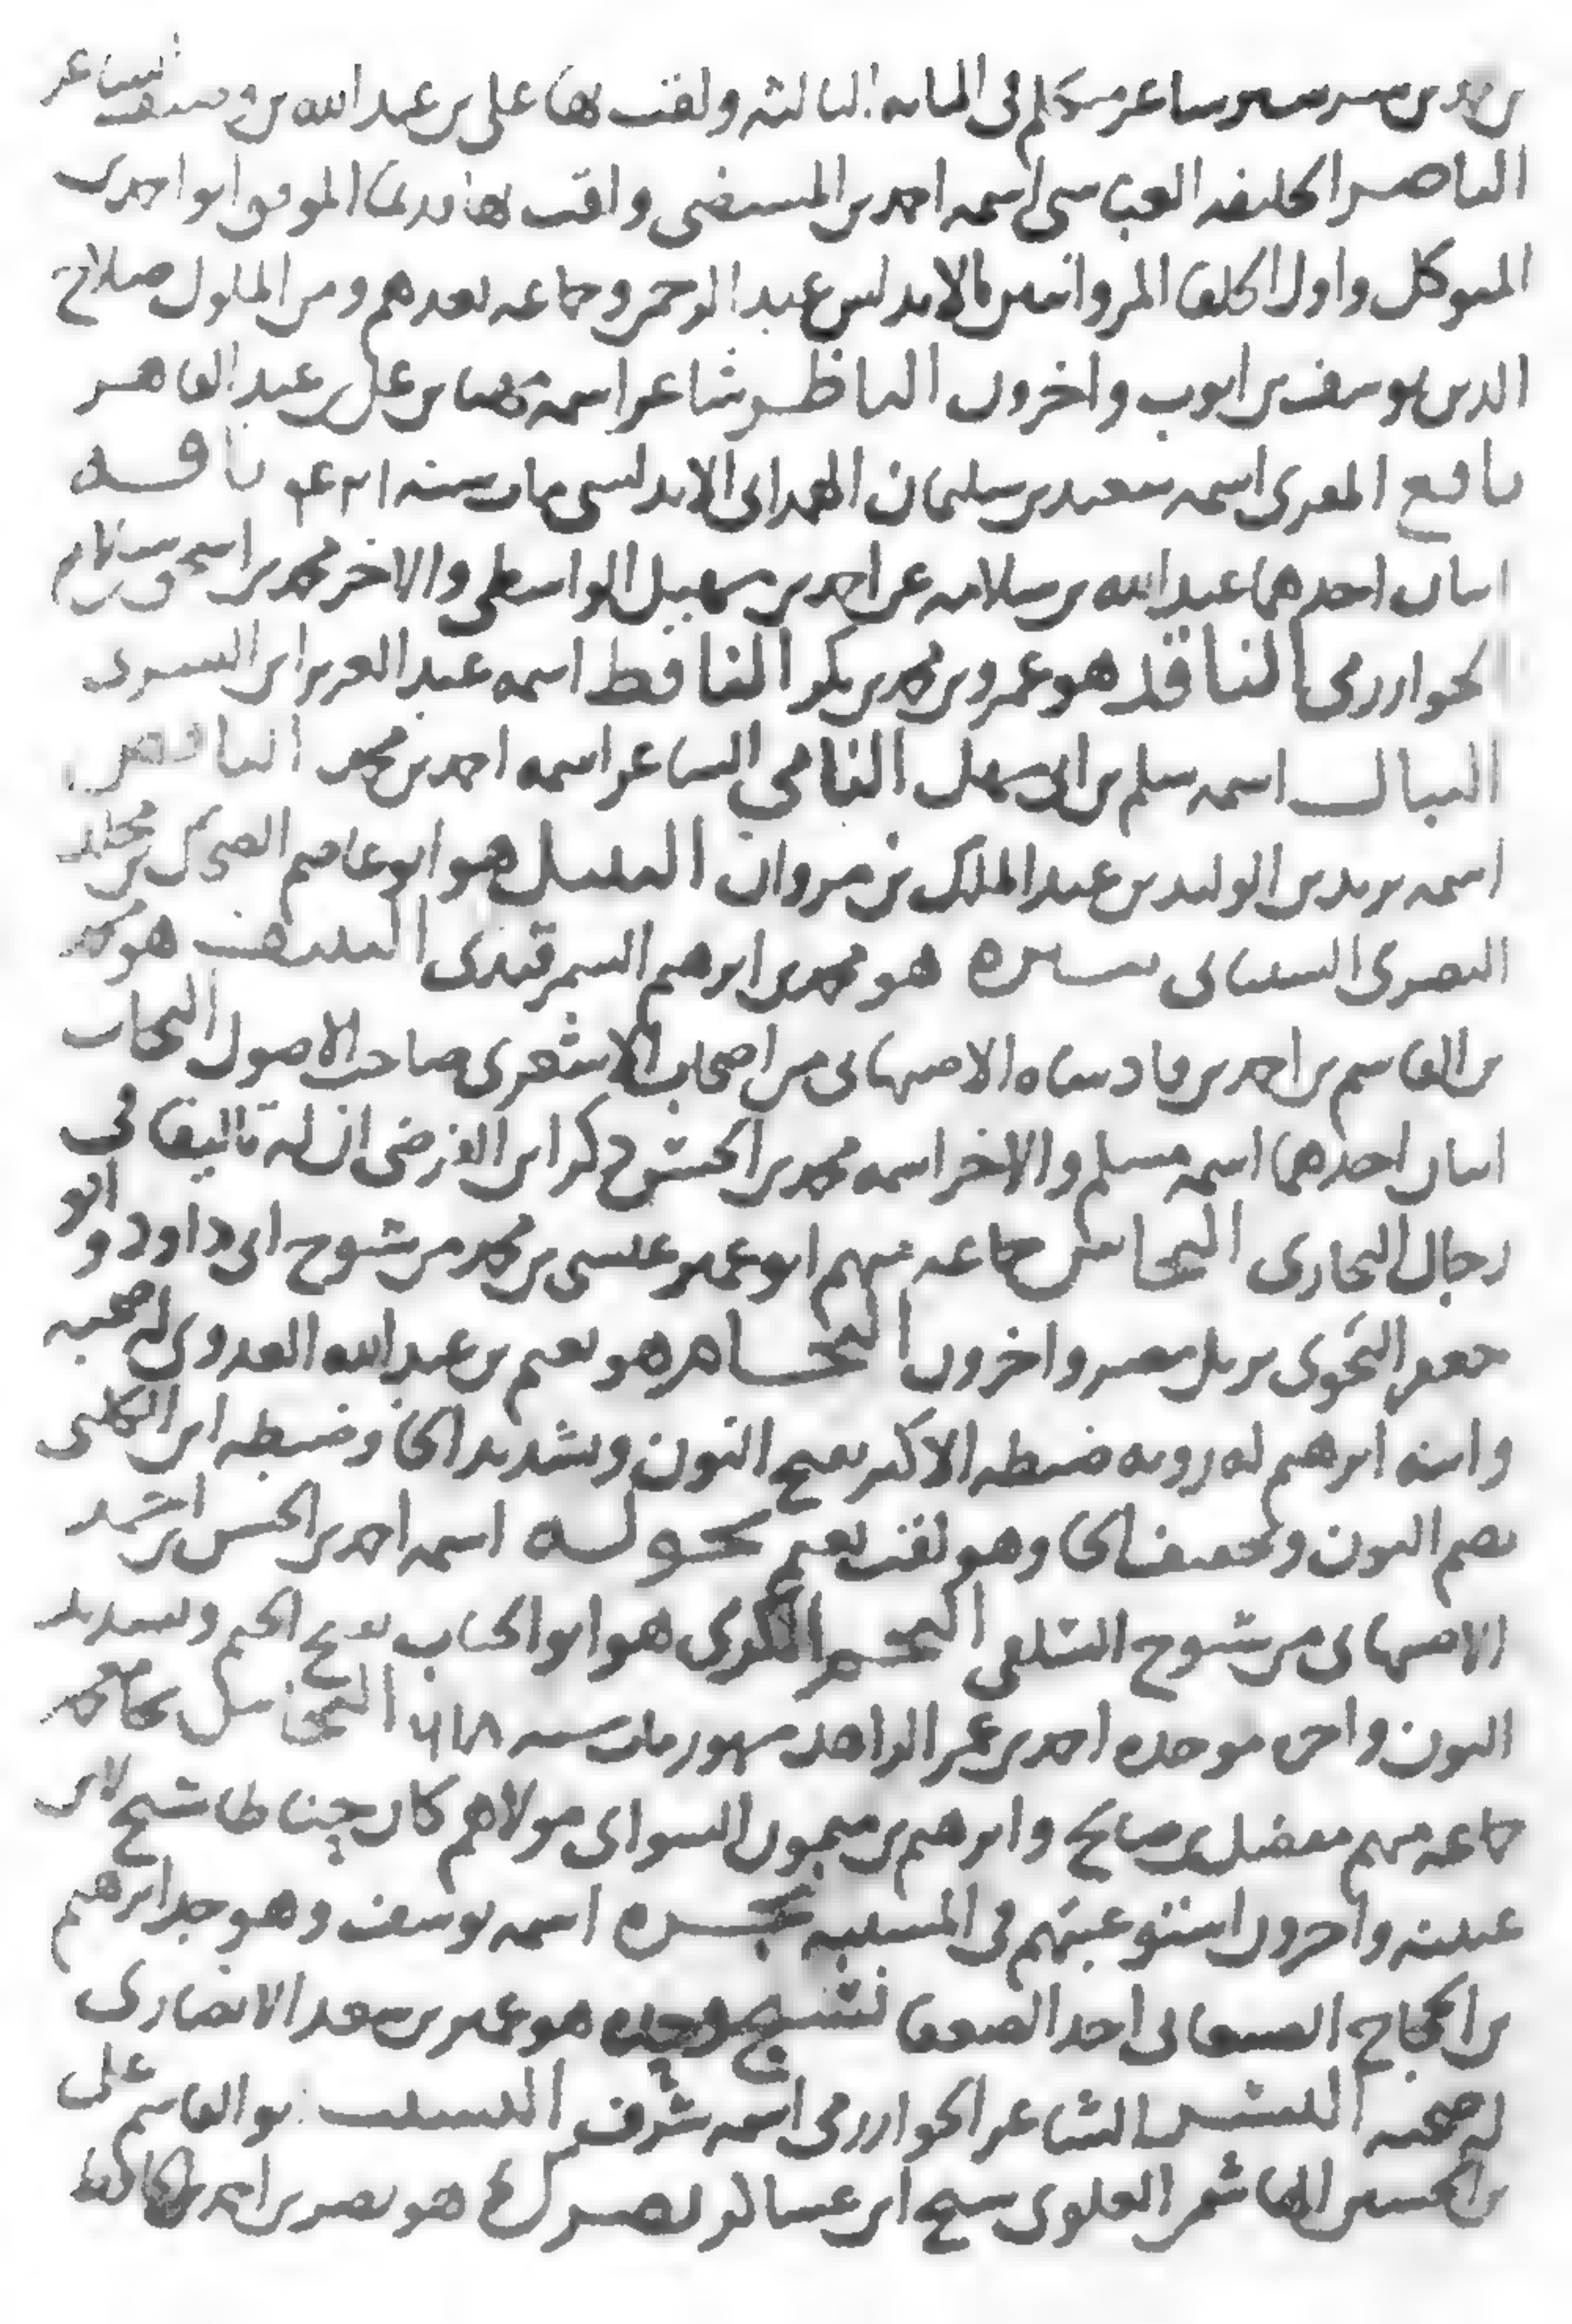 بن محمد بن شرشير شاعر متكلم في المايه الثالثه ولقب بها علي بن عبد الله بن وصيف الشاعر
الناصر الخليفه العباسي اسمه احمد بن المستضي ولقب بها قديما الموفق ابو احمد بن
المتوكل واول الخلفا المروانيين بالاندلس عبد الرحمن وجماعه بعدهم ومن الملوك صلاح
الدين يوسف بن ايوب واخرون الناظر شاعر اسمه بن علي بن عبد القاهر
نافع المقري اسمه سعيد بن سليمان الهمداني الاندلسي مات سنه ٤٢١ نافه
اثنان احدهما عبد الله بن سلامه عن احمد بن سهيل الواسطي والاخر محمد بن اسحق بن سلام
الخوارزمي الناقد هو عمرو بن محمد بن بكر الناقط اسمه عبد العزيز ابن السري
النبال اسمه سلم بن ابي سهل النامي الشاعر اسمه احمد بن محمد الناقص
اسمه يزيد بن الوليد بن عبد الملك بن مروان النبيل هو ابو عاصم الضحاك بن مخلد
البصري الشيباني نبيره هو محمد بن ابرهيم السمرقندي النتيف هو محمد
بن القاسم بن احمد بن فادشاه الاصبهاني من اصحاب الاشعري صاحب الاصول النجات
اثنان احدهما اسمه مسلم والاخر اسمه محمد بن ذكر ابن الفرضي ان له تاليفا في
رجال البخاري النحاس جماعه منهم ابو عمير عيسى بن محمد من شيوخ ابي داود وابو
جعفر النحوي نزيل مصر واخرون النحام هو نعيم بن عبد الله العدوي له صحبه
وابنه ابرهيم له رويه ضبطه الاكثر بفتح النون وتشديد الحا وضبطه ابن الكلبي
بضم النون وتخفيف الحا وهو لقب نعيم نحوله اسمه احمد بن الحسن بن احمد
الاصبهاني من شيوخ السلفي النجم الكبرى هو ابو الجناب بفتح الجيم وتشديد
النون واخره موحده احمد بن عمر الزاهد مشهور مات سنه ٦١٨ النخاس بخا معجمه
جماعه منهم مفضل بن صالح وابرهيم بن ميمون السوائي مولاهم كان حناطا شيخ لابن
عيينه واخرون استوعبتهم في المشتبه نجره اسمه يوسف وهو جد ابرهيم
بن الحجاج الصنعاني احد الضعفا نسيج وحده هو عمير بن سعد الانصاري
له صحبه الشاعر الخوارزمي اسمه شرف النسيب ابو القاسم علي
بن الحسين الهاشمي العلوي شيخ ابن عساكر نصرك هو نصر بن احمد الحافظ